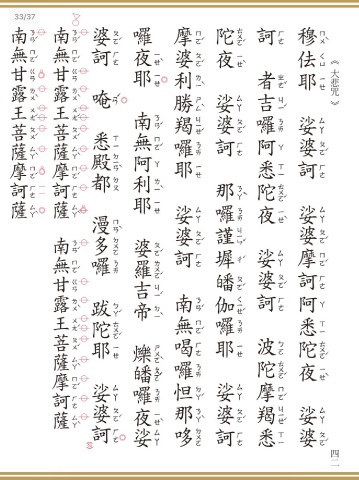 33/37
《大悲咒》
四二
穆佉耶 娑婆訶 娑婆摩訶阿悉陀夜 娑婆
訶 者吉囉阿悉陀夜 娑婆訶 波陀摩羯悉
陀夜 娑婆訶 那囉謹墀皤伽囉耶 娑婆訶
摩婆利勝羯囉耶 娑婆訶 南無喝囉怛那哆
囉夜耶 南無阿利耶 婆羅吉帝 爍皤囉夜 娑
婆訶 唵 悉殿都 漫多囉 跋陀耶 娑婆訶
南無甘露王菩薩摩訶薩 南無甘露王菩薩摩訶薩
南無甘露王菩薩摩訶薩